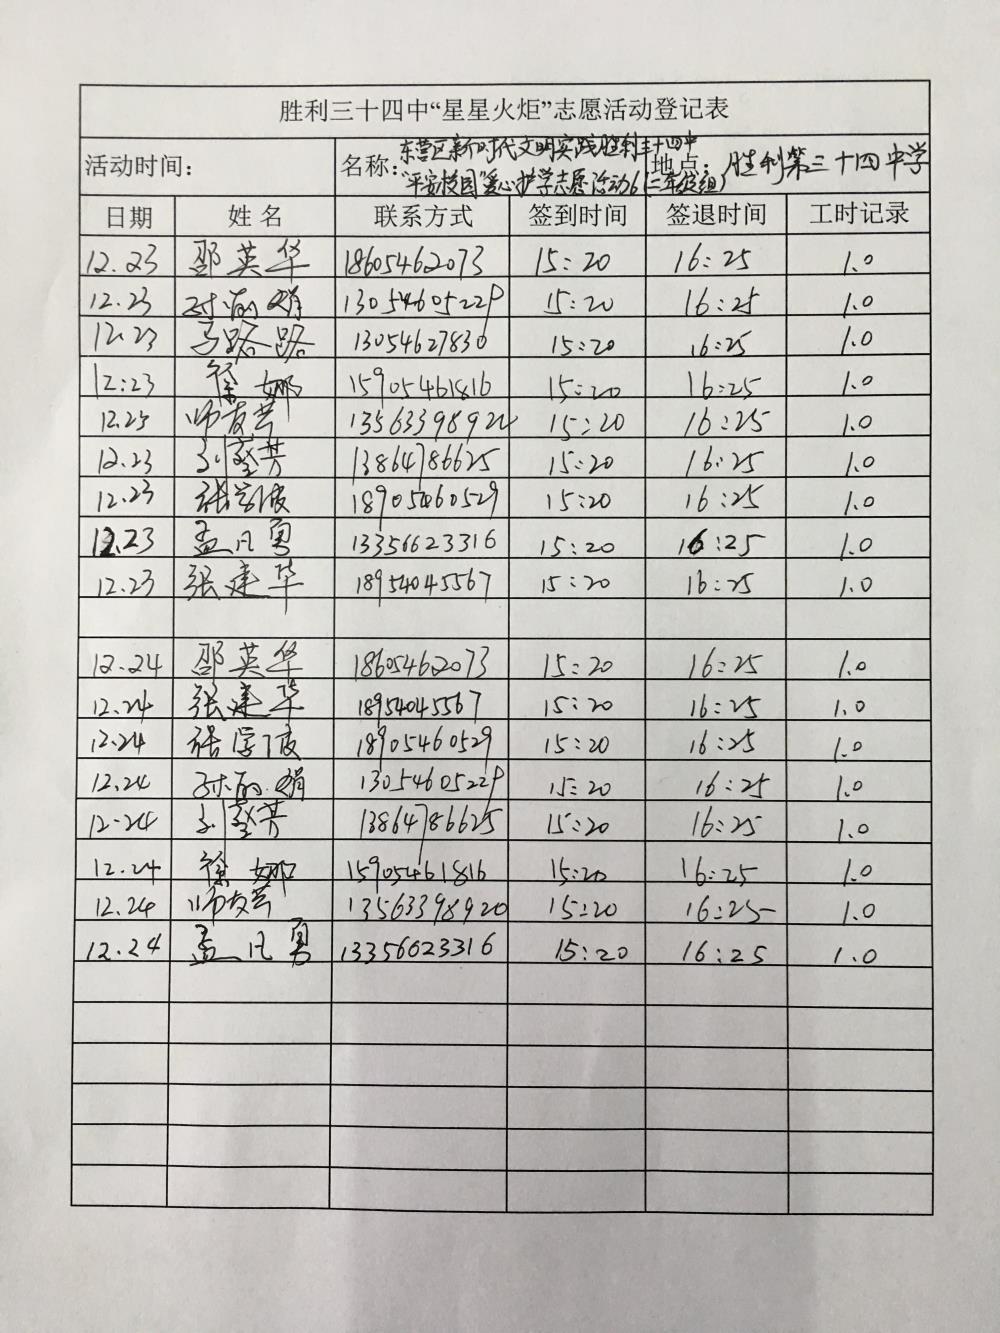 胜利三十四中“星星火炬”志愿活动登记表
活动时间： 名称：东营区新时代文明实践胜利三十四中 地点：胜利第三十四中学
“平安校园”爱心护学志愿活动6(三年级组)
日期 姓名 联系方式 签到时间 签退时间 工时记录
12.23 邵英华 18605462073 15:20 16:25 1.0
12.23 孙丽娟 13054605229 15:20 16:25 1.0
12.23 马路路 13054627830 15:20 16:25 1.0
12:23 徐娜 15905461816 15:20 16:25 1.0
12.23 师友芳 1356339892 15:20 16:25 1.0
12.23 芳 13864786625 15:20 16:25 1.0
12.23 张学波 18905460529 15:20 16:25 1.0
12.23 孟凡勇 13356623316 15:20 16:25 1.0
12.23 张建华 18954045567 15:20 16:25 1.0
12.24 邵英华 18605462073 15:20 16:25 1.0
12.24 张建华 18954045567 15:20 16:25 1.0
12.24 张学波 18905460529 15:20 16:25 1.0
12.24 孙丽娟 13054605229 15:20 16:25 1.0
12-24 芳 13864786625 15:20 16:25 1.0
12.24 徐娜 15905461816 15:20 16:25 1.0
12.24 师友芳 13563398920 15:20 16:25 1.0
12.24 孟凡勇 13356623316 15:20 16:25 1.0